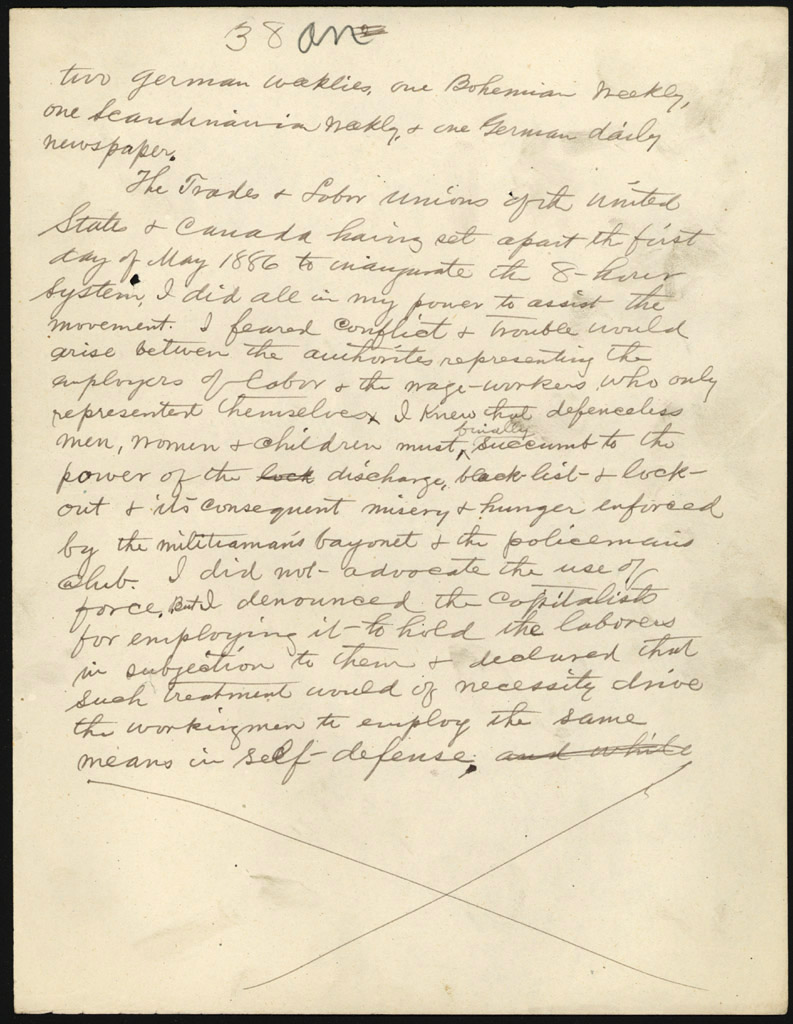 38
two German weeklies, one Bohemian Weekly,
one Scandinavian Weekly, & one German daily
newspaper.
The Trades & Labor unions of the United
States & Canada having set apart the first
day of May 1886 to inaugurate the 8-hour
system, I did all in my power to assist the
movement. I feared conflict & trouble would
arise between the authorites representing the
employers of labor & the wage-workers who only
represented themselves. I knew that defenceless
men, women & children must finally succumb to the
power of the lock discharge, black-list & lock-
out & its consequent misery & hunger enforced
by the militiaman's bayonet & the policeman's
club. I did not advocate the use of
force. But I denounced the capitalists
for employing it to hold the laborers
in subjection to them & declared that
such treatment would of necessity drive
the workingmen to employ the same
means in self-defense. and while